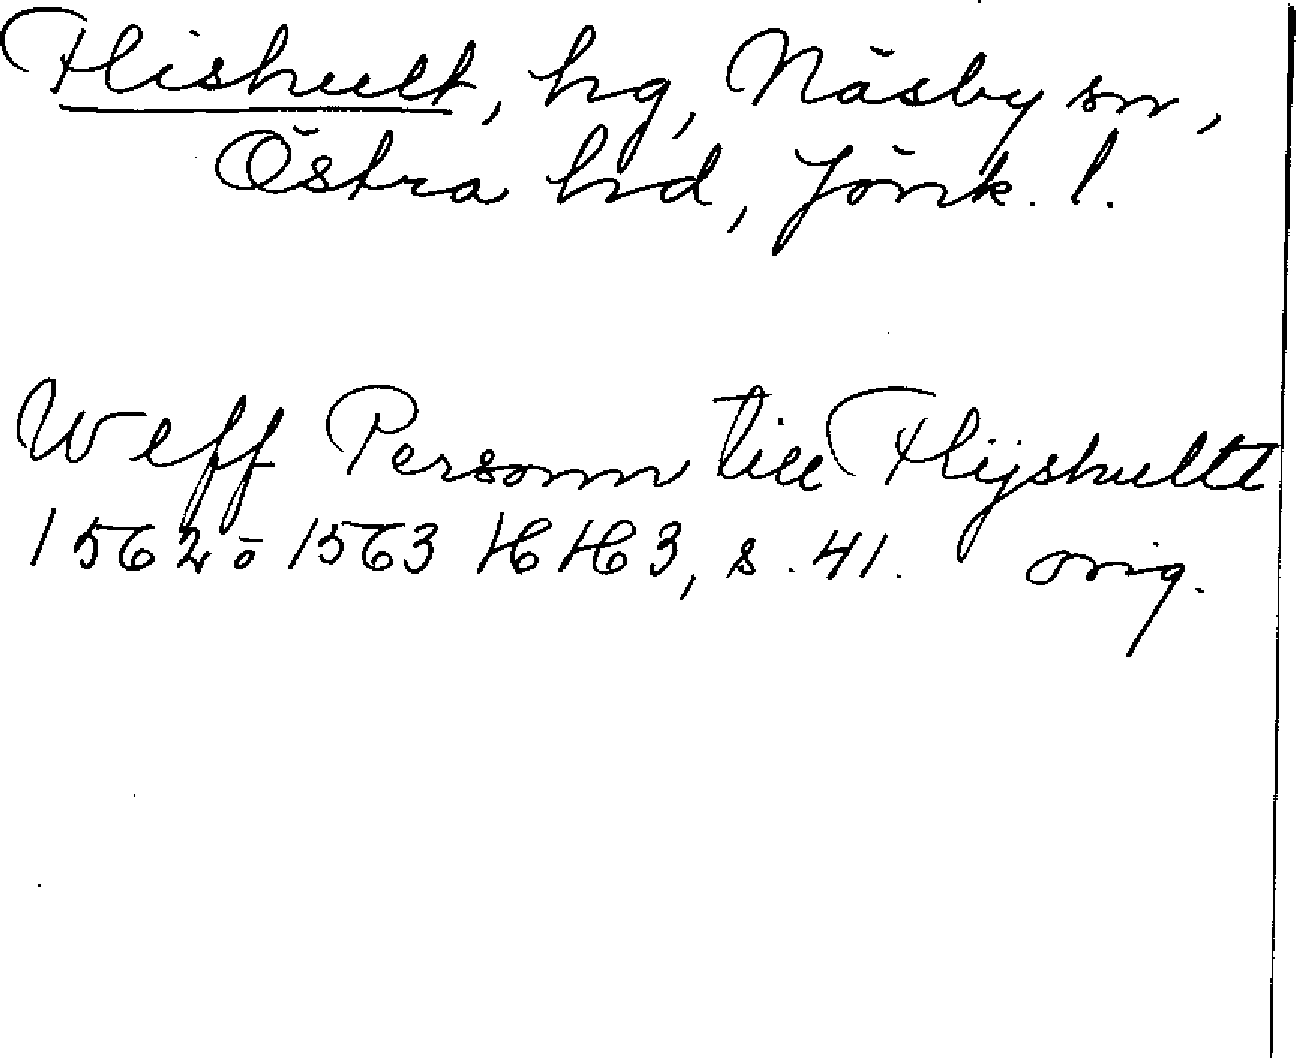 Flishult, hg, Näsby sn,
Östra hd, Jönk. l.
Weff Personn till Flijshullt
1562 o 1563 HH 3, s. 41. orig.